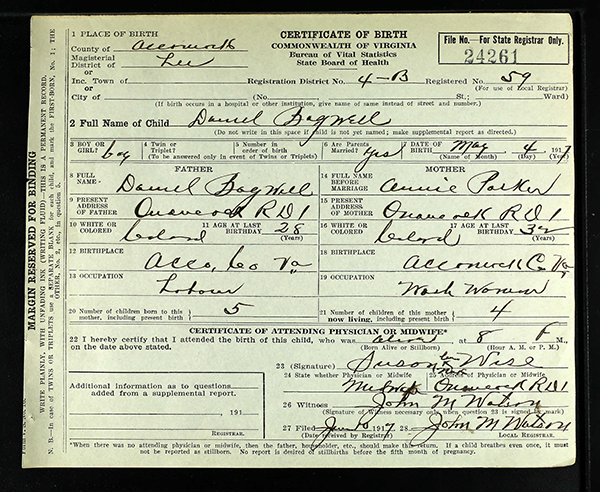 1 PLACE OF BIRTH
County of Accomack
Magisterial
District of Lee
or
Inc. Town of
or
City of
CERTIFICATE OF BIRTH
COMMONWEALTH OF VIRGINIA
Bureau of Vital Statistics
State Board of Health
File No.—For State Registrar Only.
24261
Registration District No. 4-B Registered No. 59
(For use of Local Registrar)
(No. St.; Ward)
(If birth occurs in a hospital or other institution, give name of same instead of street and number.)
2 Full Name of Child Daniel Bagwell
(Do not write in this space if child is not yet named; make supplemental report as directed.)
3 BOY OR GIRL? boy
4 Twin or Triplet?
5 Number in order of birth
(To be answered only in event of Twins or Triplets)
6 Are Parents Married? Yes
7 DATE OF BIRTH May 4 1917
(Name of Month) (Day) (Year)
FATHER
8 FULL NAME Daniel Bagwell
9 PRESENT ADDRESS OF FATHER Onancock R D 1
10 WHITE OR COLORED Colored
11 AGE AT LAST BIRTHDAY 28 (Years)
12 BIRTHPLACE Acco, Co Va
13 OCCUPATION Labour
20 Number of children born to this mother, including present birth 5
MOTHER
14 FULL NAME BEFORE MARRIAGE Annie Parker
15 PRESENT ADDRESS OF MOTHER Onancock R D 1
16 WHITE OR COLORED Colored
17 AGE AT LAST BIRTHDAY 32 (Years)
18 BIRTHPLACE Accomack Co Va
19 OCCUPATION Wash Woman
21 Number of children of this mother now living, including present birth 4
CERTIFICATE OF ATTENDING PHYSICIAN OR MIDWIFE*
22 I hereby certify that I attended the birth of this child, who was alive at 8 P M.,
on the date above stated. (Born Alive or Stillborn) (Hour A. M. or P. M.)
23 (Signature) Wise
24 State whether Physician or Midwife 25 Address of Physician or Midwife
Onancock R D 1
26 Witness John M Watson
(Signature of Witness necessary only when question 23 is signed by mark)
27 Filed 1917 28 John M Watson
(Date received by Registrar) LOCAL REGISTRAR.
Additional information as to questions
added from a supplemental report.
191
REGISTRAR.
*When there was no attending physician or midwife, then the father, householder, etc., should make this return. If a child breathes even once, it must
not be reported as stillborn. No report is desired of stillbirths before the fifth month of pregnancy.
MARGIN RESERVED FOR BINDING
WRITE PLAINLY, WITH UNFADING INK (WRITING FLUID)—THIS IS A PERMANENT RECORD.
N. B.—In case of TWINS or TRIPLETS use a SEPARATE BLANK for each child, and mark the FIRST-BORN, No. 1; THE
OTHER, No. 2, etc., in question 5.